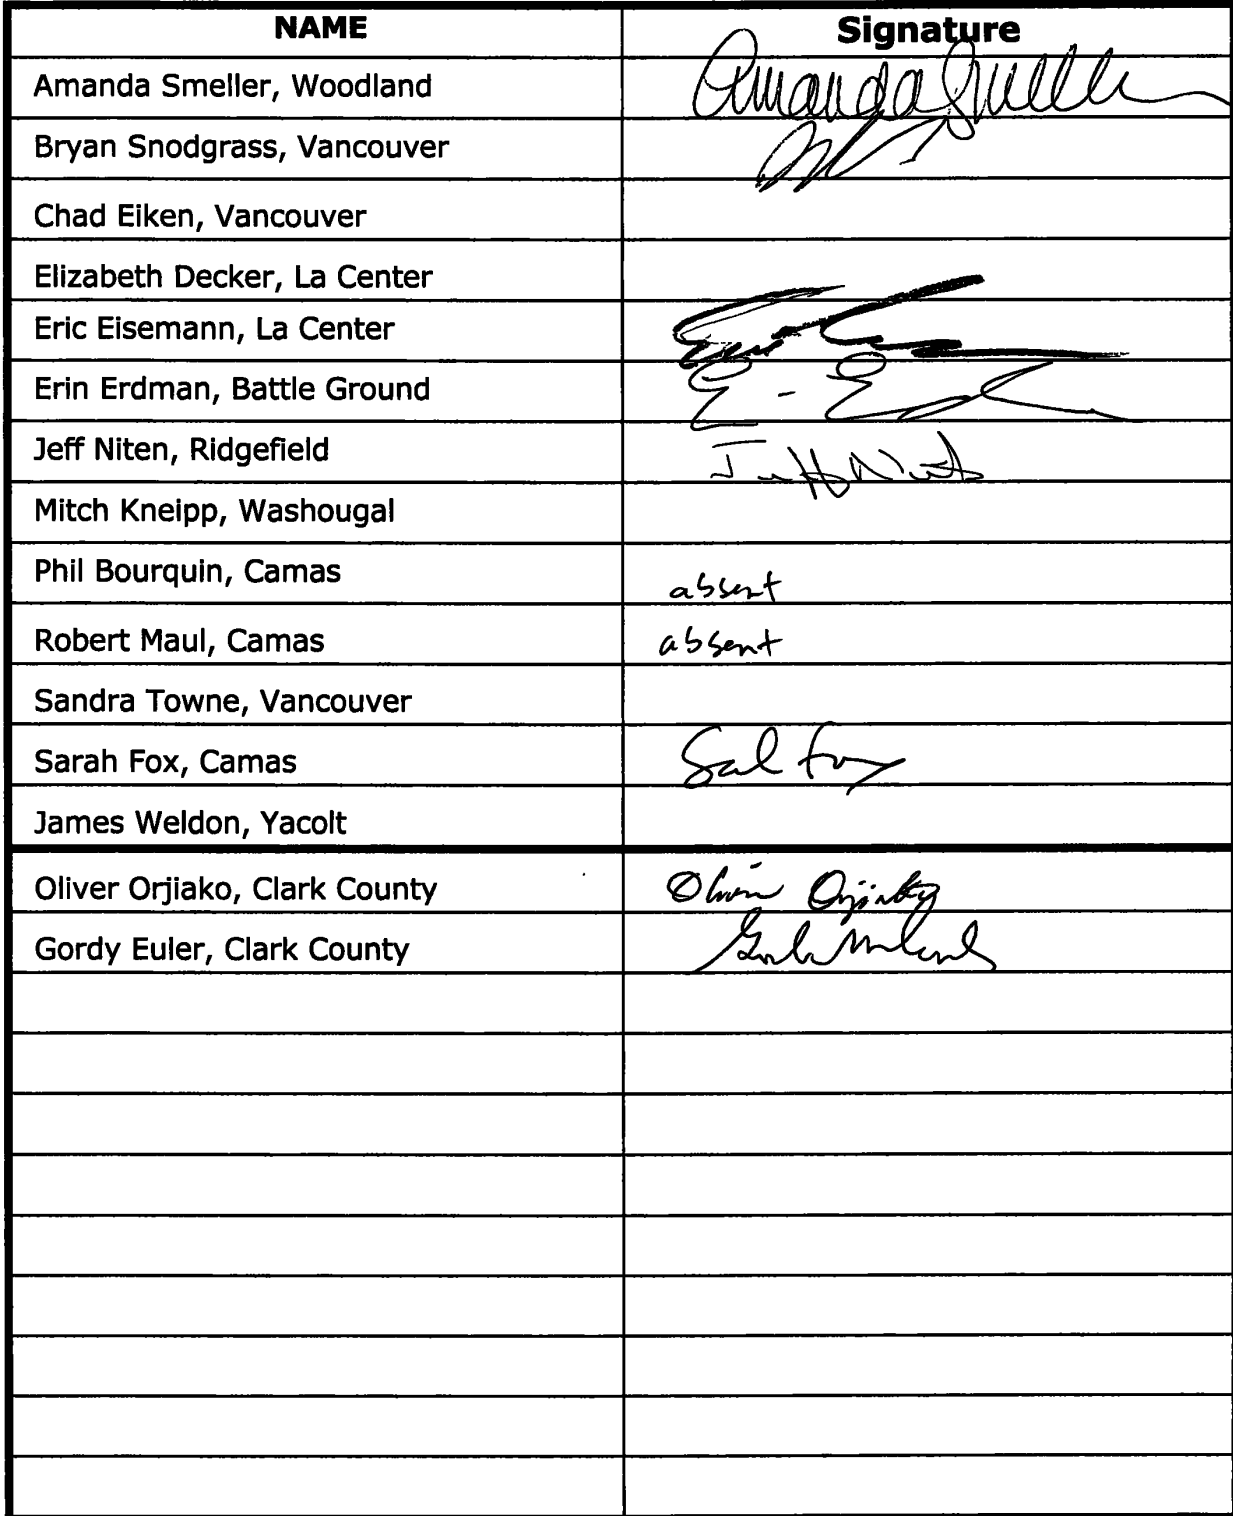 NAME Signature
Amanda Smeller, Woodland Amanda Smeller
Bryan Snodgrass, Vancouver
Chad Eiken, Vancouver
Elizabeth Decker, La Center
Eric Eisemann, La Center
Erin Erdman, Battle Ground
Jeff Niten, Ridgefield Jeff Niten
Mitch Kneipp, Washougal
Phil Bourquin, Camas absent
Robert Maul, Camas absent
Sandra Towne, Vancouver
Sarah Fox, Camas
James Weldon, Yacolt
Oliver Orjiako, Clark County Oliver Orjiako
Gordy Euler, Clark County